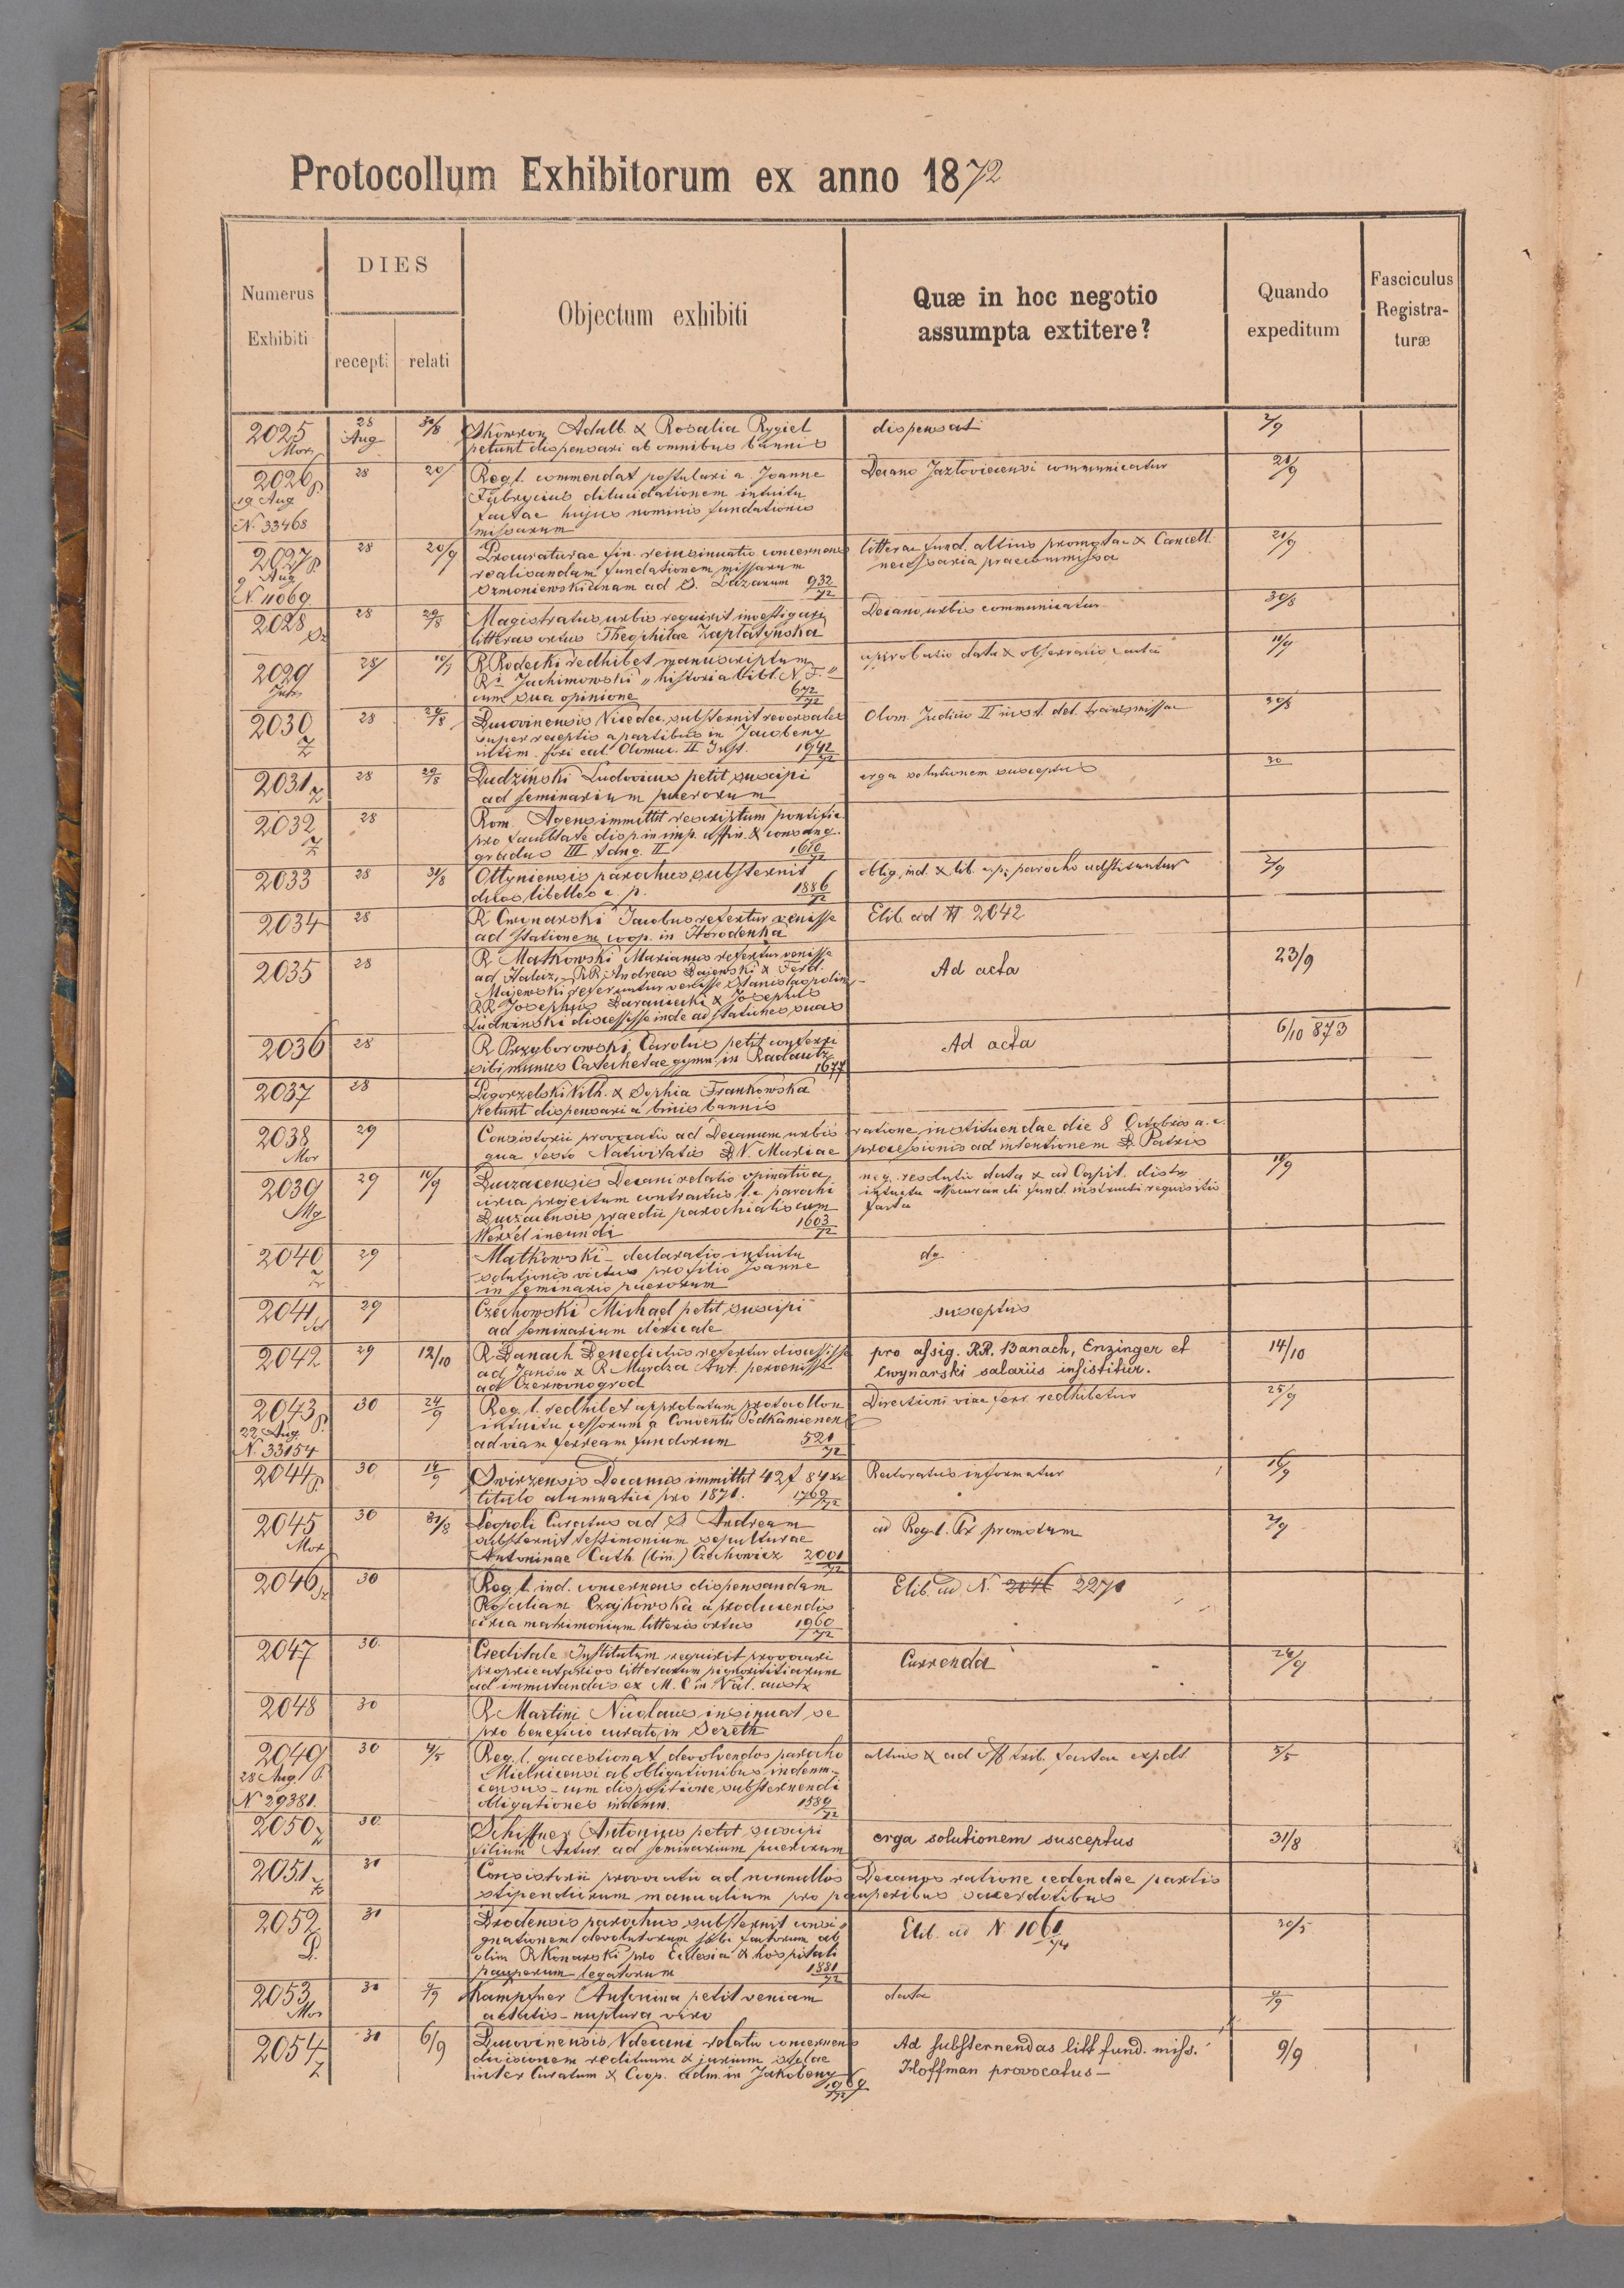 Protocollum Exhibitorum ex anno 1872
Numerus Exhibiti
DIES
recepti
relati
Objectum exhibiti
Quæ in hoc negotio
assumpta extitere?
Quando
expeditum
Fasciculus
Registra-
turæ
2025 28 Aug 30/8 Skowron Adalb. & Rosalia Rygiel dispensati 2/9
Mor petunt dispensari ab omnibus bannis
2026 p. 28 20/ Reg. l. commendat postulari a Joanne Decano Jazłoviecensi communicatur 21/9
29 Aug Fabrycius dilucidationem intuitu
N. 33468 factae hujus nominis fundationis
missarum
2027 p. 28 20/9 Procuraturae fin. reinsinuatio concernens litterae fund. altius promotae & Cancell. 21/9
9 Aug realisandam fundationem missarum necessaria praecommissa
N. 11069 Ozmoniewskianam ad S. Lazarum 932/72
2028 28 29/8 Magistratus urbis requirit investigari Decano urbis communicatur 30/8
litteras ortus Theophilae Zapłatyńska
2029 28 10/9 R. Rodecki redhibet manuscriptum approbatio data & observatio facta 11/9
Ri Jachimowski „historia bibl. N. T."
cum sua opinione 672/72
2030 28 29/8 Bucovinensis Vicedec. substernit reversales Olom. Judicio II inst. det. transmissae 30/8
Z super receptis a partibus in Jacobeny
intim. fori eccl. Olomuc. II Inst. 1942/72
2031 Z 28 29/8 Dudziński Ludovicus petit suscipi erga solutionem susceptus 30
ad seminarium puerorum
2032 28 Rom. Agens immittit rescriptum pontific.
Z pro facultate disp. in imp. affin. & consang.
gradus III tang. II 1610/72
2033 28 31/8 Ottyniensis parochus substernit oblig. ind. & lib. a. p. parocho adstituuntur 2/9
duos libellos a. p. 1886/72
2034 28 R. Cwynarski Jacobus refertur venisse Elib. ad N 2042
ad stationem coop. in Horodenka
2035 28 R. Matkowski Marianus refertur venisse Ad acta 23/9
ad Halicz, RR. Andreas Bajewski & Ferd.
Majewski referuntur venisse Stanislaopolim
RR Josephus Baraniecki & Josephus
Ludwinski discessisse inde ad stationes suas
2036 28 R. Przyborowski Carolus petit conferri Ad acta 6/10 873
sibi munus Catechetae gymn. in Radautz 1677
2037 28 Pogorzelski Vilh. & Sophia Frankowska
petunt dispensari a binis bannis
2038 29 Consistorii provocatio ad Decanum urbis ratione instituendae die 8 Octobris a. c.
Mor qua festo Nativitatis B. V. Mariae processionis ad intentionem S. Patris
2039 29 10/9 Buczacensis Decani relatio opinativa neg. resolutio data & ad Capit. distr. 11/9
Mg circa projectum contractus l. c. parochi intuitu assecurandi fund. instructi requisitio
Buczacensis praedii parochialis cum facta
Werzel ineundi 1603/72
2040 29 Matkowski – declaratio intuitu do
Z solutionis victus pro filio Joanne
in seminario puerorum
2041 29 Czechowski Michael petit suscipi susceptus
ad seminarium clericale
2042 29 12/10 R. Banach Benedictus refertur discessisse pro assig. RR. Banach, Enzinger et 14/10
ad Janów & R. Murdza Ant. pervenisse Cwynarski salariis insistitur.
ad Czerwonogrod
2043 p. 30 24/9 Reg. l. redhibet approbatum protocollon Directioni viae ferr. redhibetur 25/9
22 Aug. intuitu cessorum a Conventu Podkamienensi
N. 33154 ad viam ferream fundorum 521/72
2044 p. 30 14/9 Swirzensis Decanus immittit 42 f 84 xr Rectoratus informatur 16/9
titulo alumnatici pro 1871. 1769/72
2045 30 31/8 Leopoli Curatus ad S Andream ad Reg. l. Ar promotum 2/9
Mor substernit testimonium sepulturae
Antoninae Cath. (bin.) Czechowicz 2001/72
2046 30 Reg. l. ind. concernens dispensandam Elib. ad N. 2046 2271
Rosaliam Czajkowska a producendis
circa matrimonium litteris ortus 1960/72
2047 30 Creditale Institutum requirit provocari Currenda 24/9
proprietarios litterarum pignorititiarum
ad immutandas ex M. C in Val. austr.
2048 30 R Martini Nicolaus insinuat se
pro beneficio curato in Sereth
2049 30 4/5 Reg. l. quaestionat devolvendos parocho altius & ad Off. trib. factae exped. 5/5
28 Aug. p. Mielnicensi ab obligationibus indemn.
N 29381 census – cum dispositione substernendi
obligationes indemn. 1589/72
2050 Z 30 Schiffner Antonius petit suscipi erga solutionem susceptus 31/8
filium Artur. ad seminarium puerorum
2051 Z 31 Consistorii provocatio ad nonnullos Decanos ratione cedendae partis
stipendiorum manualium pro pauperibus sacerdotibus
2052 31 Brodensis parochus substernit consi- Elib. ad N. 1061/74 20/5
P. gnationem devolutorum sibi factorum ab
olim R Konarski pro Ecclesia & hospitali
pauperum legatorum 1881/72
2053 31 4/9 Kampfner Antonina petit veniam data 4/9
Mor aetatis – nuptura viro
2054 31 6/9 Bucovinensis Vdecani relatio concernens Ad substernendas litt fund. miss. 9/9
Z divisionem redituum & jurium stolae Hoffman provocatus –
inter Curatum & Coop. adm. in Jakobeny 1969/72